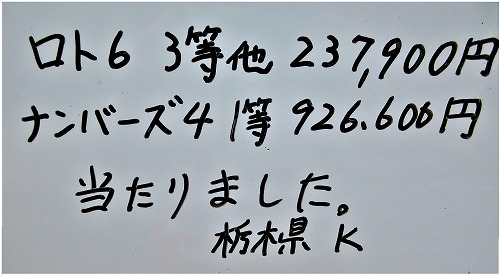 ロト6 3等他 237,900円
ナンバーズ4 1等 926.600円
当たりました。
栃木県 K